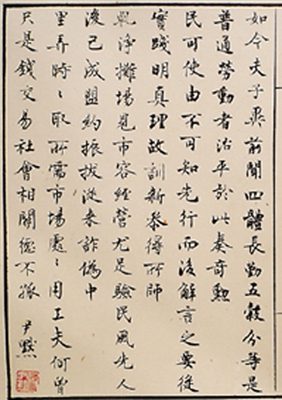 如今夫子異前聞四體長勤五穀分等是
普通勞動者治平於此奏奇勲
民可使由不可知先行而後解言之要從
實踐明真理故訓新參得所師
乾淨攤場見市容經營尤足驗民風先人
後己成盟約振拔從来詐偽中
里弄時〻取所需市場處〻用工夫何曾
只是錢交易社會相關德不孤 尹默